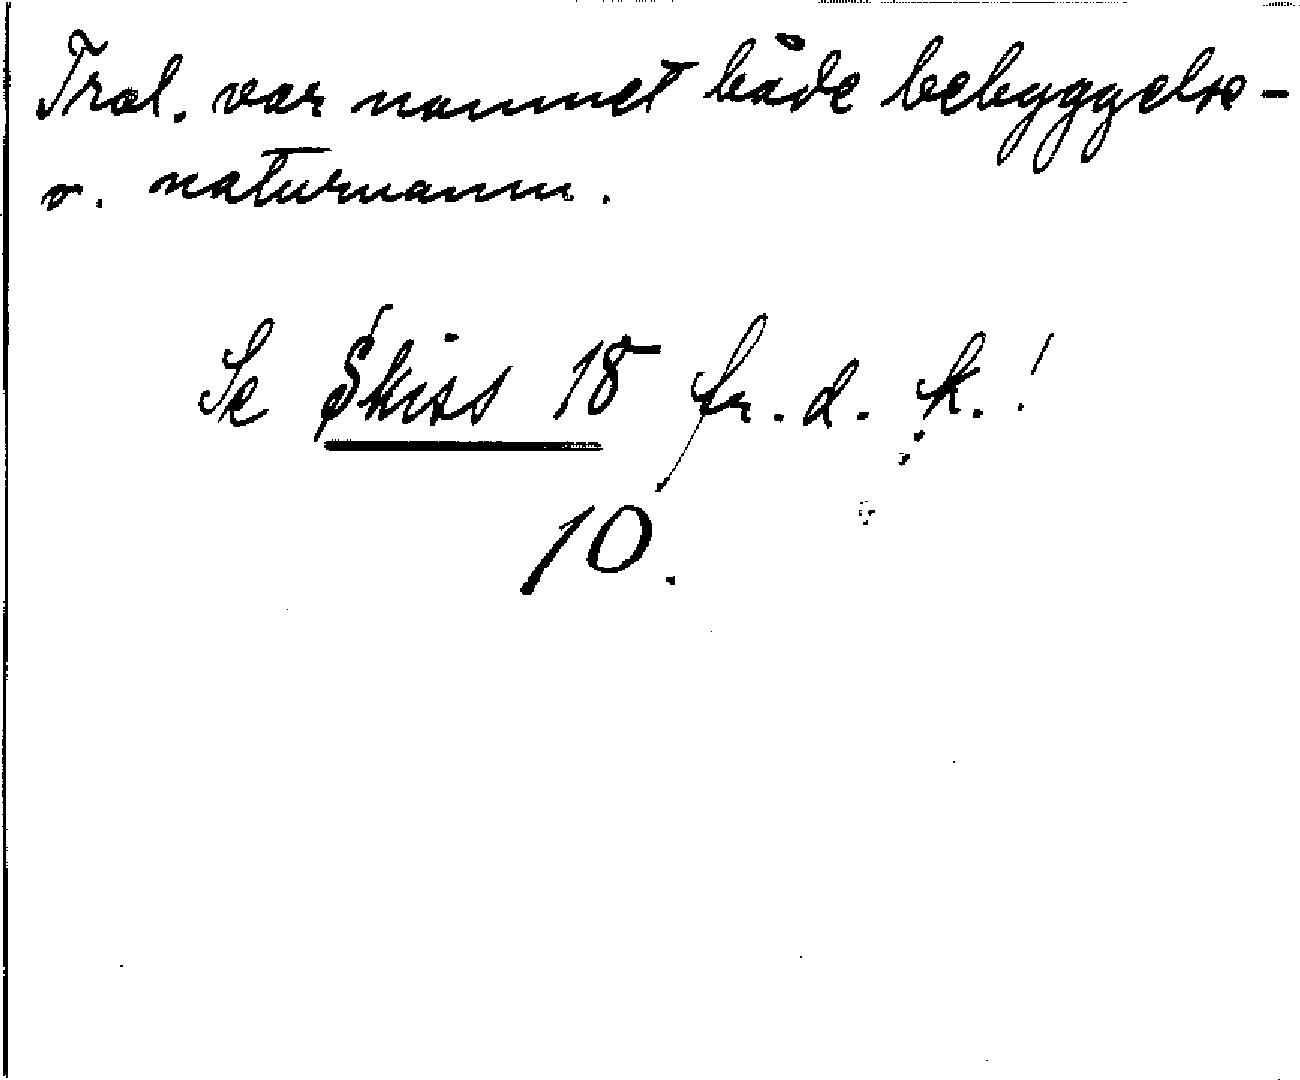 Trol. var namnet både bebyggelse-
o. naturnamn.
Se Skiss 18 fr. d. k.!
10.